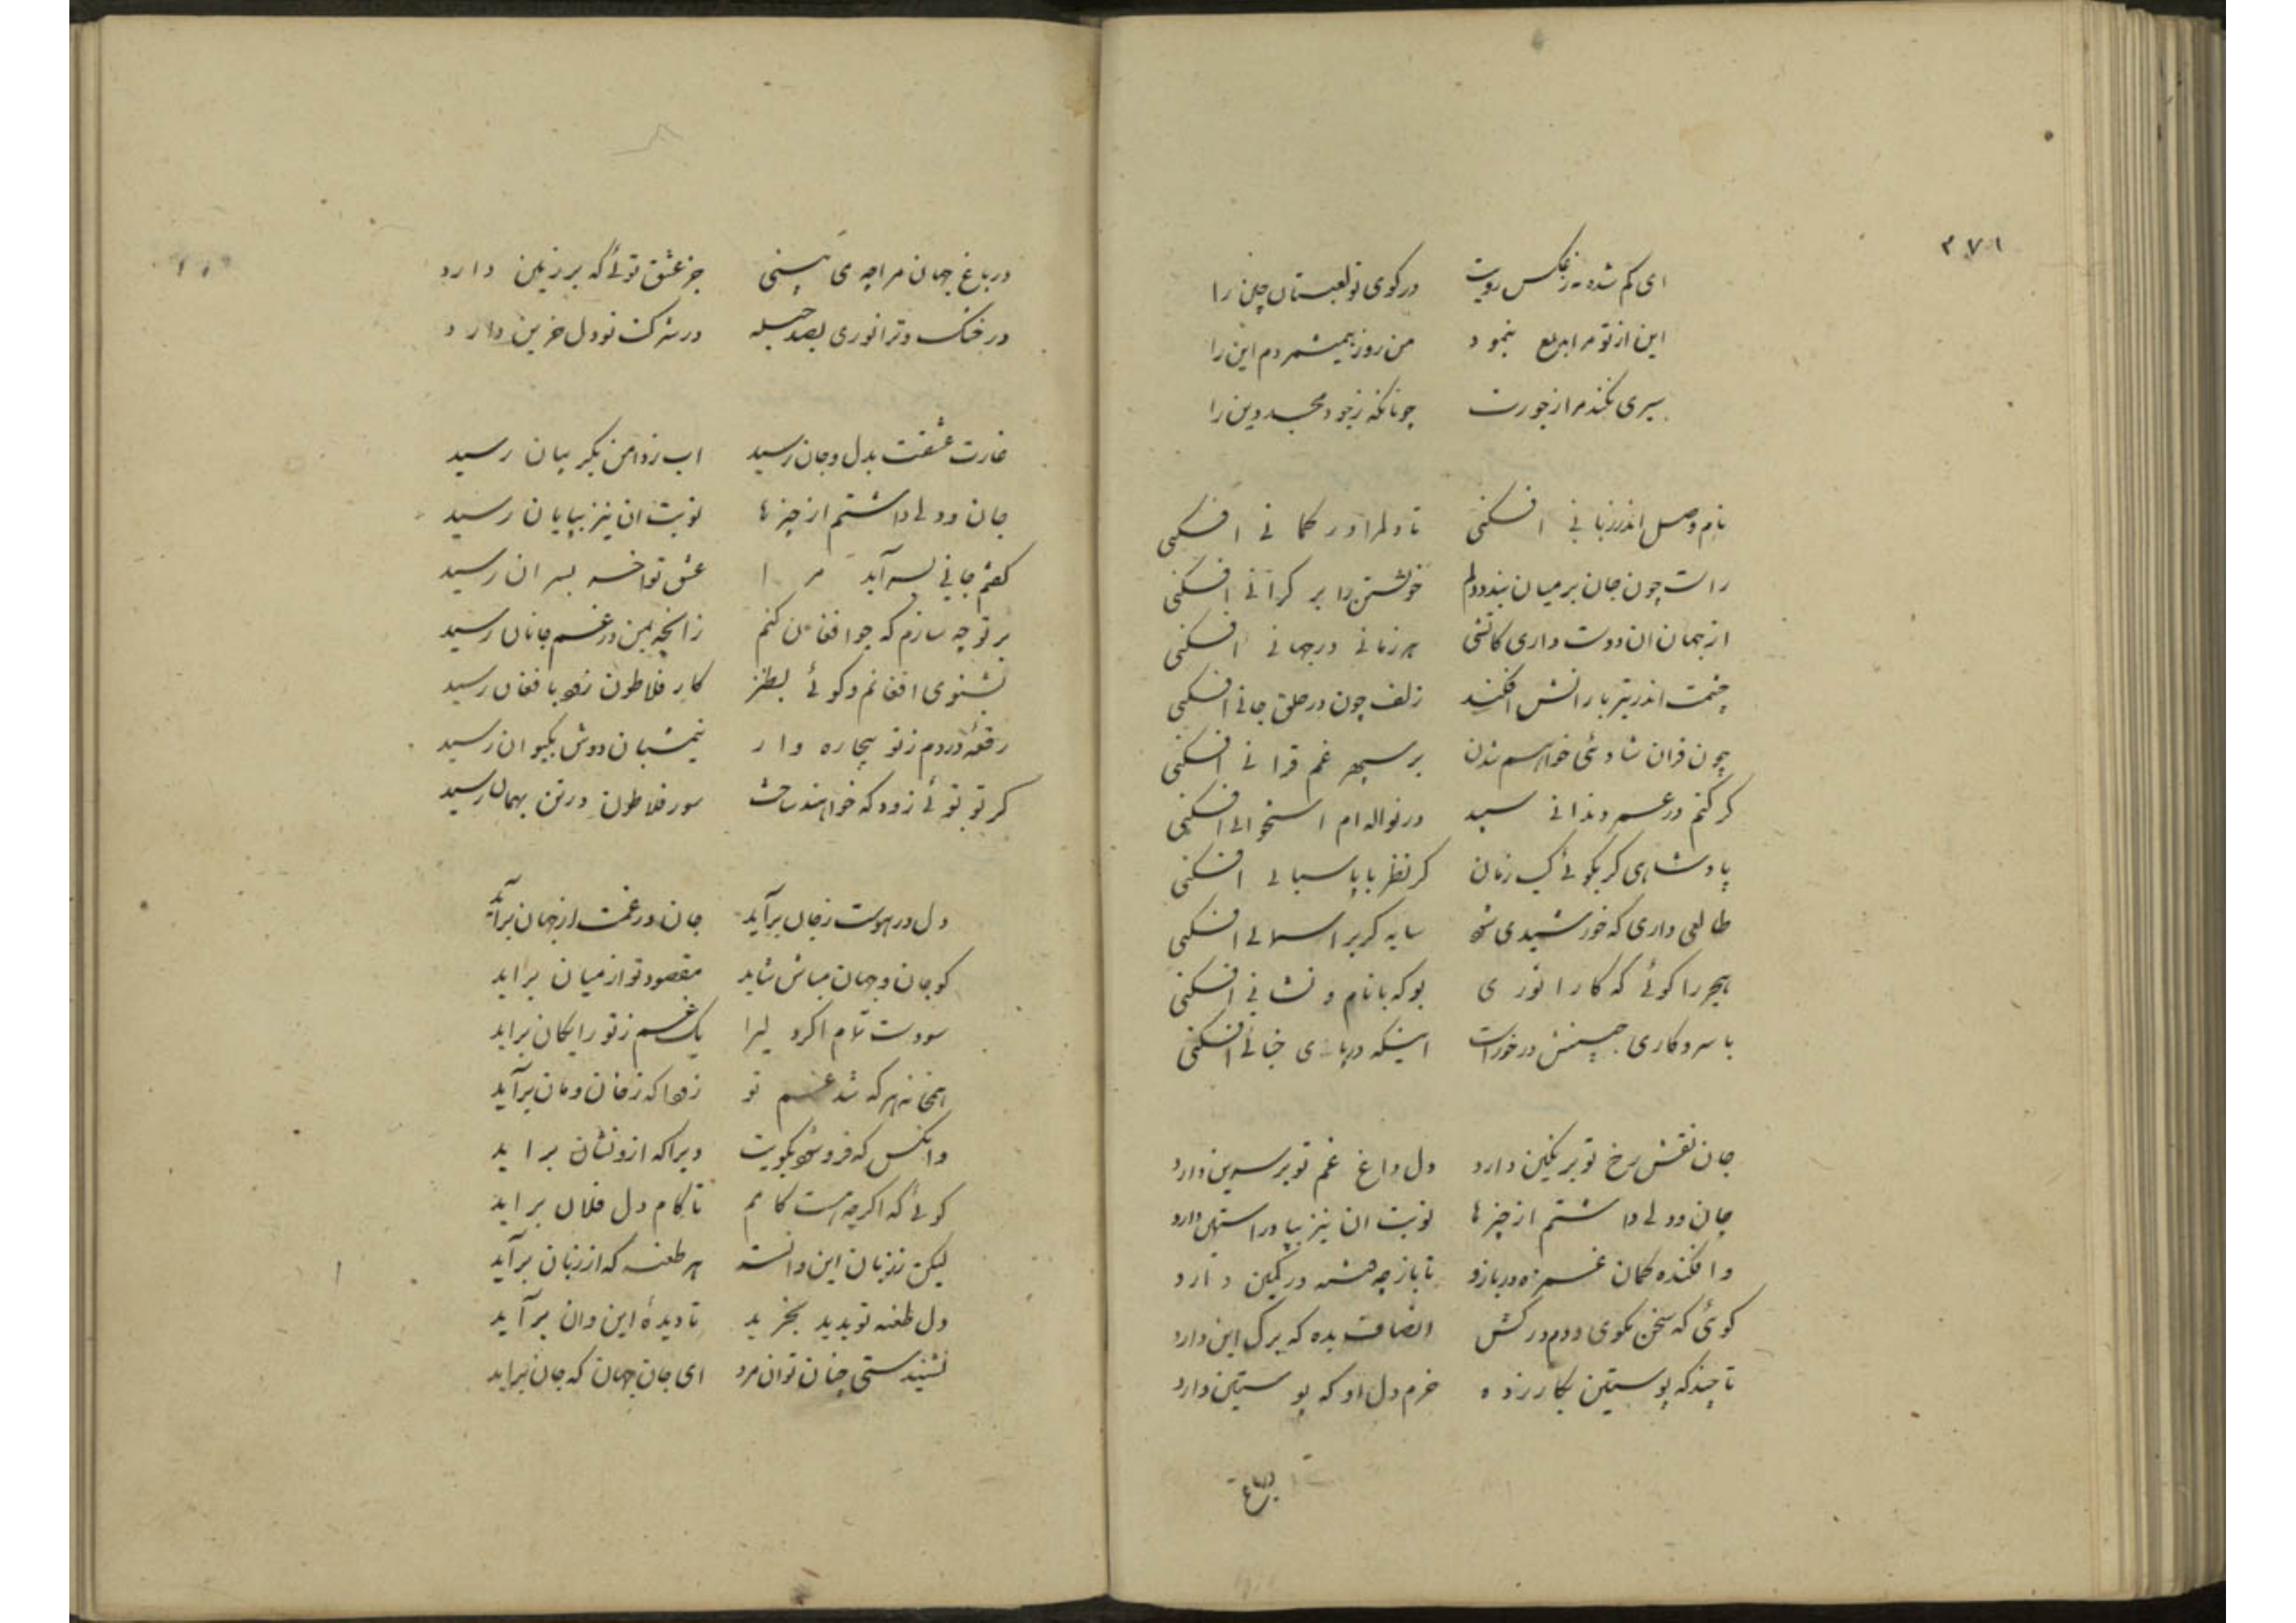 ۳۷۱
ای کم شده زعکس رویت در کوی تو لعبتان چین را
این از تو مرا بدیع ننمود من روز همیشمردم این را
سیری نکند مرا ز جورت چونانکه ز جود مجد دین را
نام وصل اندر زبانی افکنی تا دلم را در کمانی افکنی
راست چون جان بر میان بندد دلم خویشتن را بر کرانی افکنی
از جهان ان دوست داری کاتشی هر زمانی در جهانی افکنی
چشمت اندر تیر بارانش افکند زلف چون در حلق جانی افکنی
چون قران شادئی خواهم بدن بر سپهر غم قرانی افکنی
کر کنم در عمر دندانی سپید در نواله ام استخوانی افکنی
پادشاهی کر بکوئی یک زمان کر نظر با پاسبانی افکنی
طالعی داری که خورشیدی شود سایه کر بر اسمانی افکنی
هجر را کوئی که کار انوری بوکه با نام و نشانی افکنی
با سر و کاری چنینش در خوراست اینکه در پای جنانی افکنی
جان نقش رخ تو بر نکین دارد دل داغ غم تو بر سرین دارد
جان و دلی داشتم از چیزها نوبت ان نیز بیا در استین دارد
وافکنده کمان غمزه در بازو تا باز چه فتنه در کمین دارد
کوئی که سخن مکوی و دم درکش انصاف بده که برک این دارد
تا چند که پوستین بکازر ده خرم دل او که پوستین دارد
در باغ
در باغ جهان مرا چه می بینی جز عشق تو ئی که بر زمین دارد
در خنک و ترانوری بصد حیله در شرکت تو دل حزین دارد
غارت عشقت بدل و جان رسید اب ز دامن بکریبان رسید
جان و دلی داشتم از چیزها نوبت ان نیز بپایان رسید
کفتم جانی بسر آید مرا عشق تو اخر بسر ان رسید
بر تو چه سازم که چو افغان کنم زانچه بمن در غم جانان رسید
نشنوی افغانم و کوئی بطنز کار فلاطون زچه با فغان رسید
رقعه دردم ز تو بیچاره وار نیمشبان دوش بکیوان رسید
کر تو توئی زود که خواهند ساخت سور فلاطون در تن بهمان رسید
دل در هوست ز جان برآید جان در غمت از جهان برآید
کو جان و جهان مباش شاید مقصود تو از میان براید
سودست تمام اکر دلیرا یک غم ز تو رایکان براید
همخانه هر که شد غم تو زودا که ز خان و مان برآید
وانکس که فرو شود بکویت دیرا که ازو نشان براید
کوئی که اکر چه هست کامم تا کام دل فلان براید
لیکن ز زبان این و انست هر طعنه که از زبان برآید
دل طعنه تو بدید بخرید تا دیدۀ این وان برآید
نشنیدستی چنان توان مرد ای جان جهان که جان براید